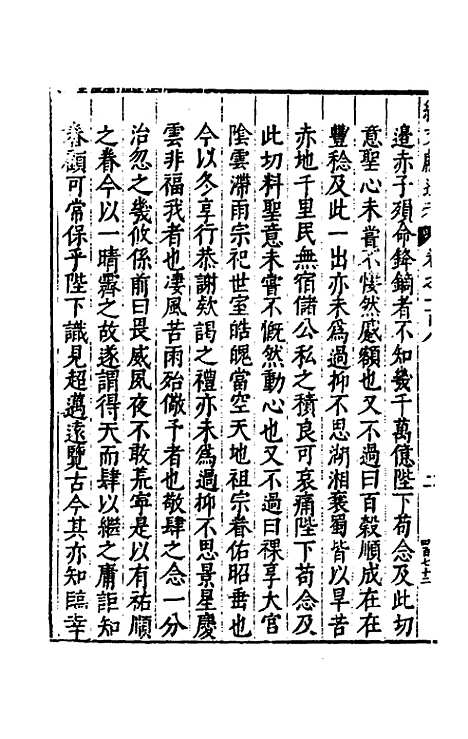 邊赤子殞命鋒鏑者不知幾千萬億陛下苟念及此切
意聖心未嘗不悽然蹙額也又不過曰百穀順成在在
豐稔及此一出亦未為過抑不思湖湘襄蜀皆以旱苦
赤地千里民無宿儲公私之積良可哀痛陛下苟念及
此切料聖意未嘗不慨然動心也又不過曰祼享大官
陰雲滯雨宗祀世室皓魄當空天地祖宗眷佑昭垂也
今以冬享行恭謝欵謁之禮亦未為過抑不思景星慶
雲非福我者也凄風苦雨殆儆予者也敬肆之念一分
治忽之幾攸係前曰畏威夙夜不敢荒寧是以有祐順
之眷今以一晴霽之故遂謂得天而肆以繼之庸詎知
眷顧可常保乎陛下識見超邁遠覽古今其亦知臨幸